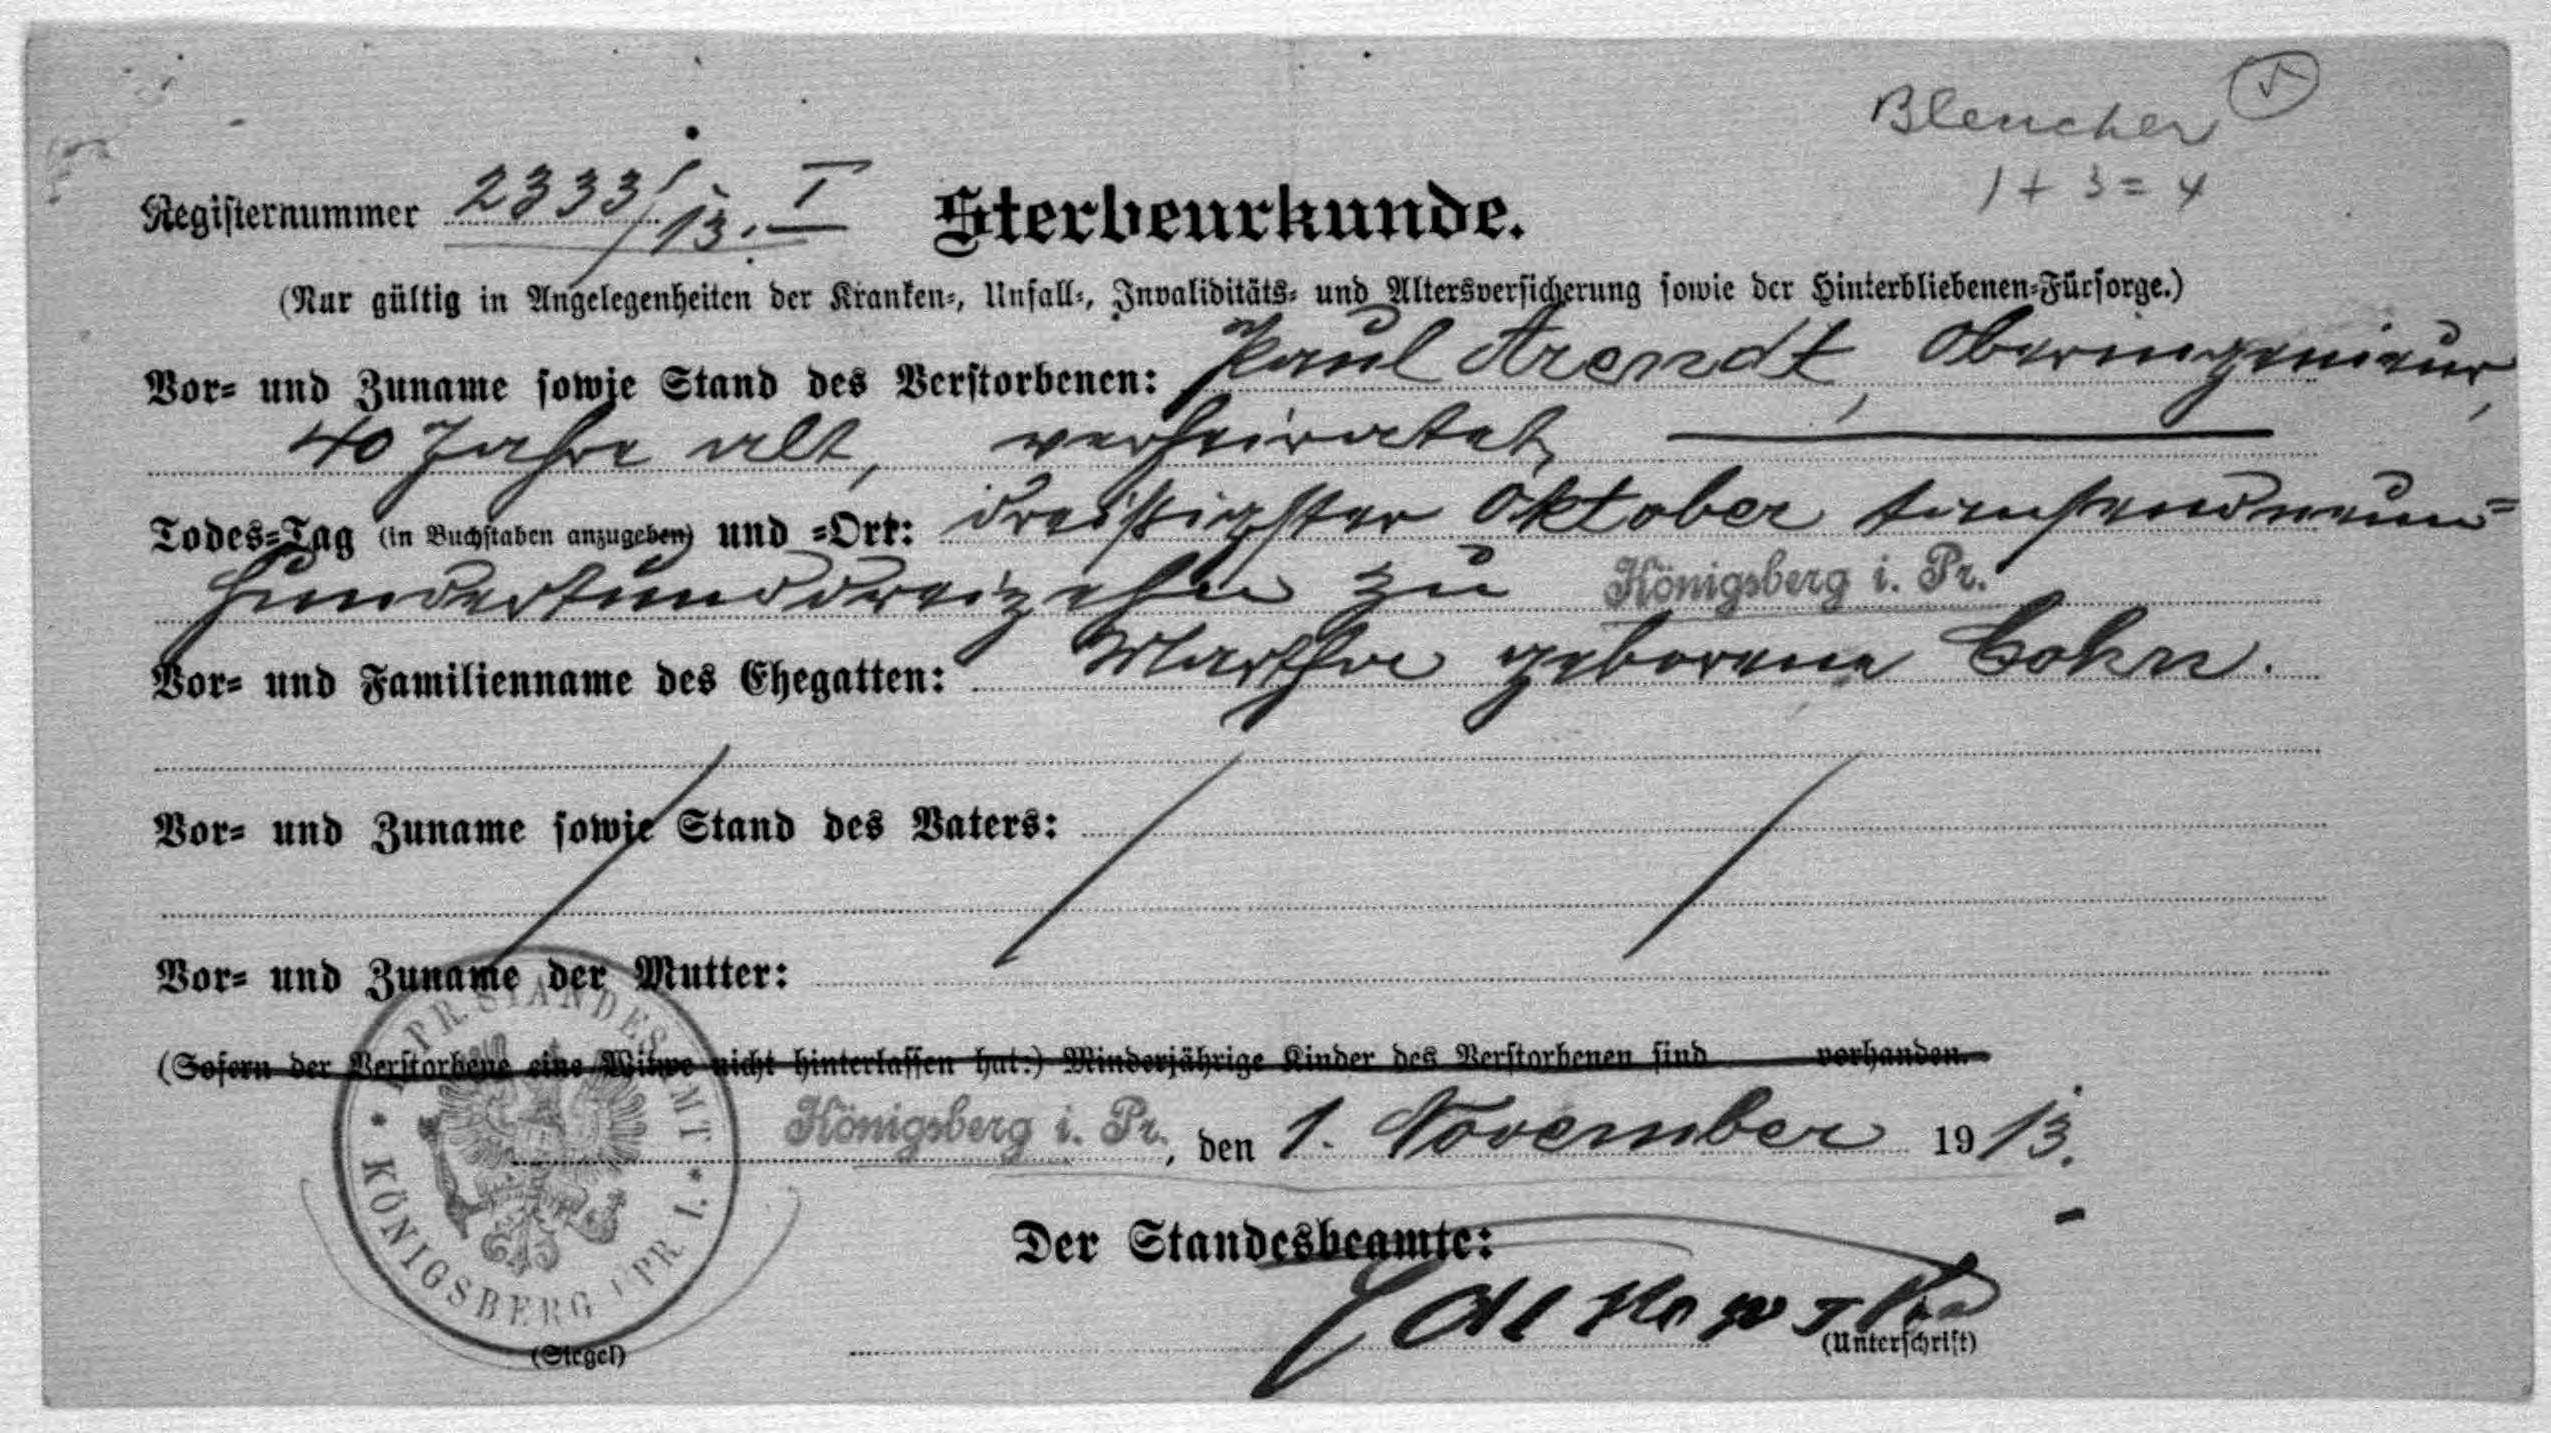 Bleucher
1 + 3 = 4
Registernummer 2333/13. I
Sterbeurkunde.
(Nur gültig in Angelegenheiten der Kranken-, Unfall-, Invaliditäts- und Altersversicherung sowie der Hinterbliebenen-Fürsorge.)
Vor- und Zuname sowie Stand des Verstorbenen: Paul Arendt, Oberingenieur,
40 Jahre alt, verheiratet,
Todes-Tag (in Buchstaben anzugeben) und -Ort: dreißigster Oktober tausendneun-
hundertunddreizehn zu Königsberg i. Pr.
Vor- und Familienname des Ehegatten: Martha geborene Cohn.
Vor- und Zuname sowie Stand des Vaters:
Vor- und Zuname der Mutter:
(Sofern der Verstorbene eine Witwe nicht hinterlassen hat:) Minderjährige Kinder des Verstorbenen sind vorhanden.
Königsberg i. Pr., den 1. November 1913.
PR. STANDESAMT I.
KÖNIGSBERG i/PR.
Der Standesbeamte:
(Siegel)
(Unterschrift)